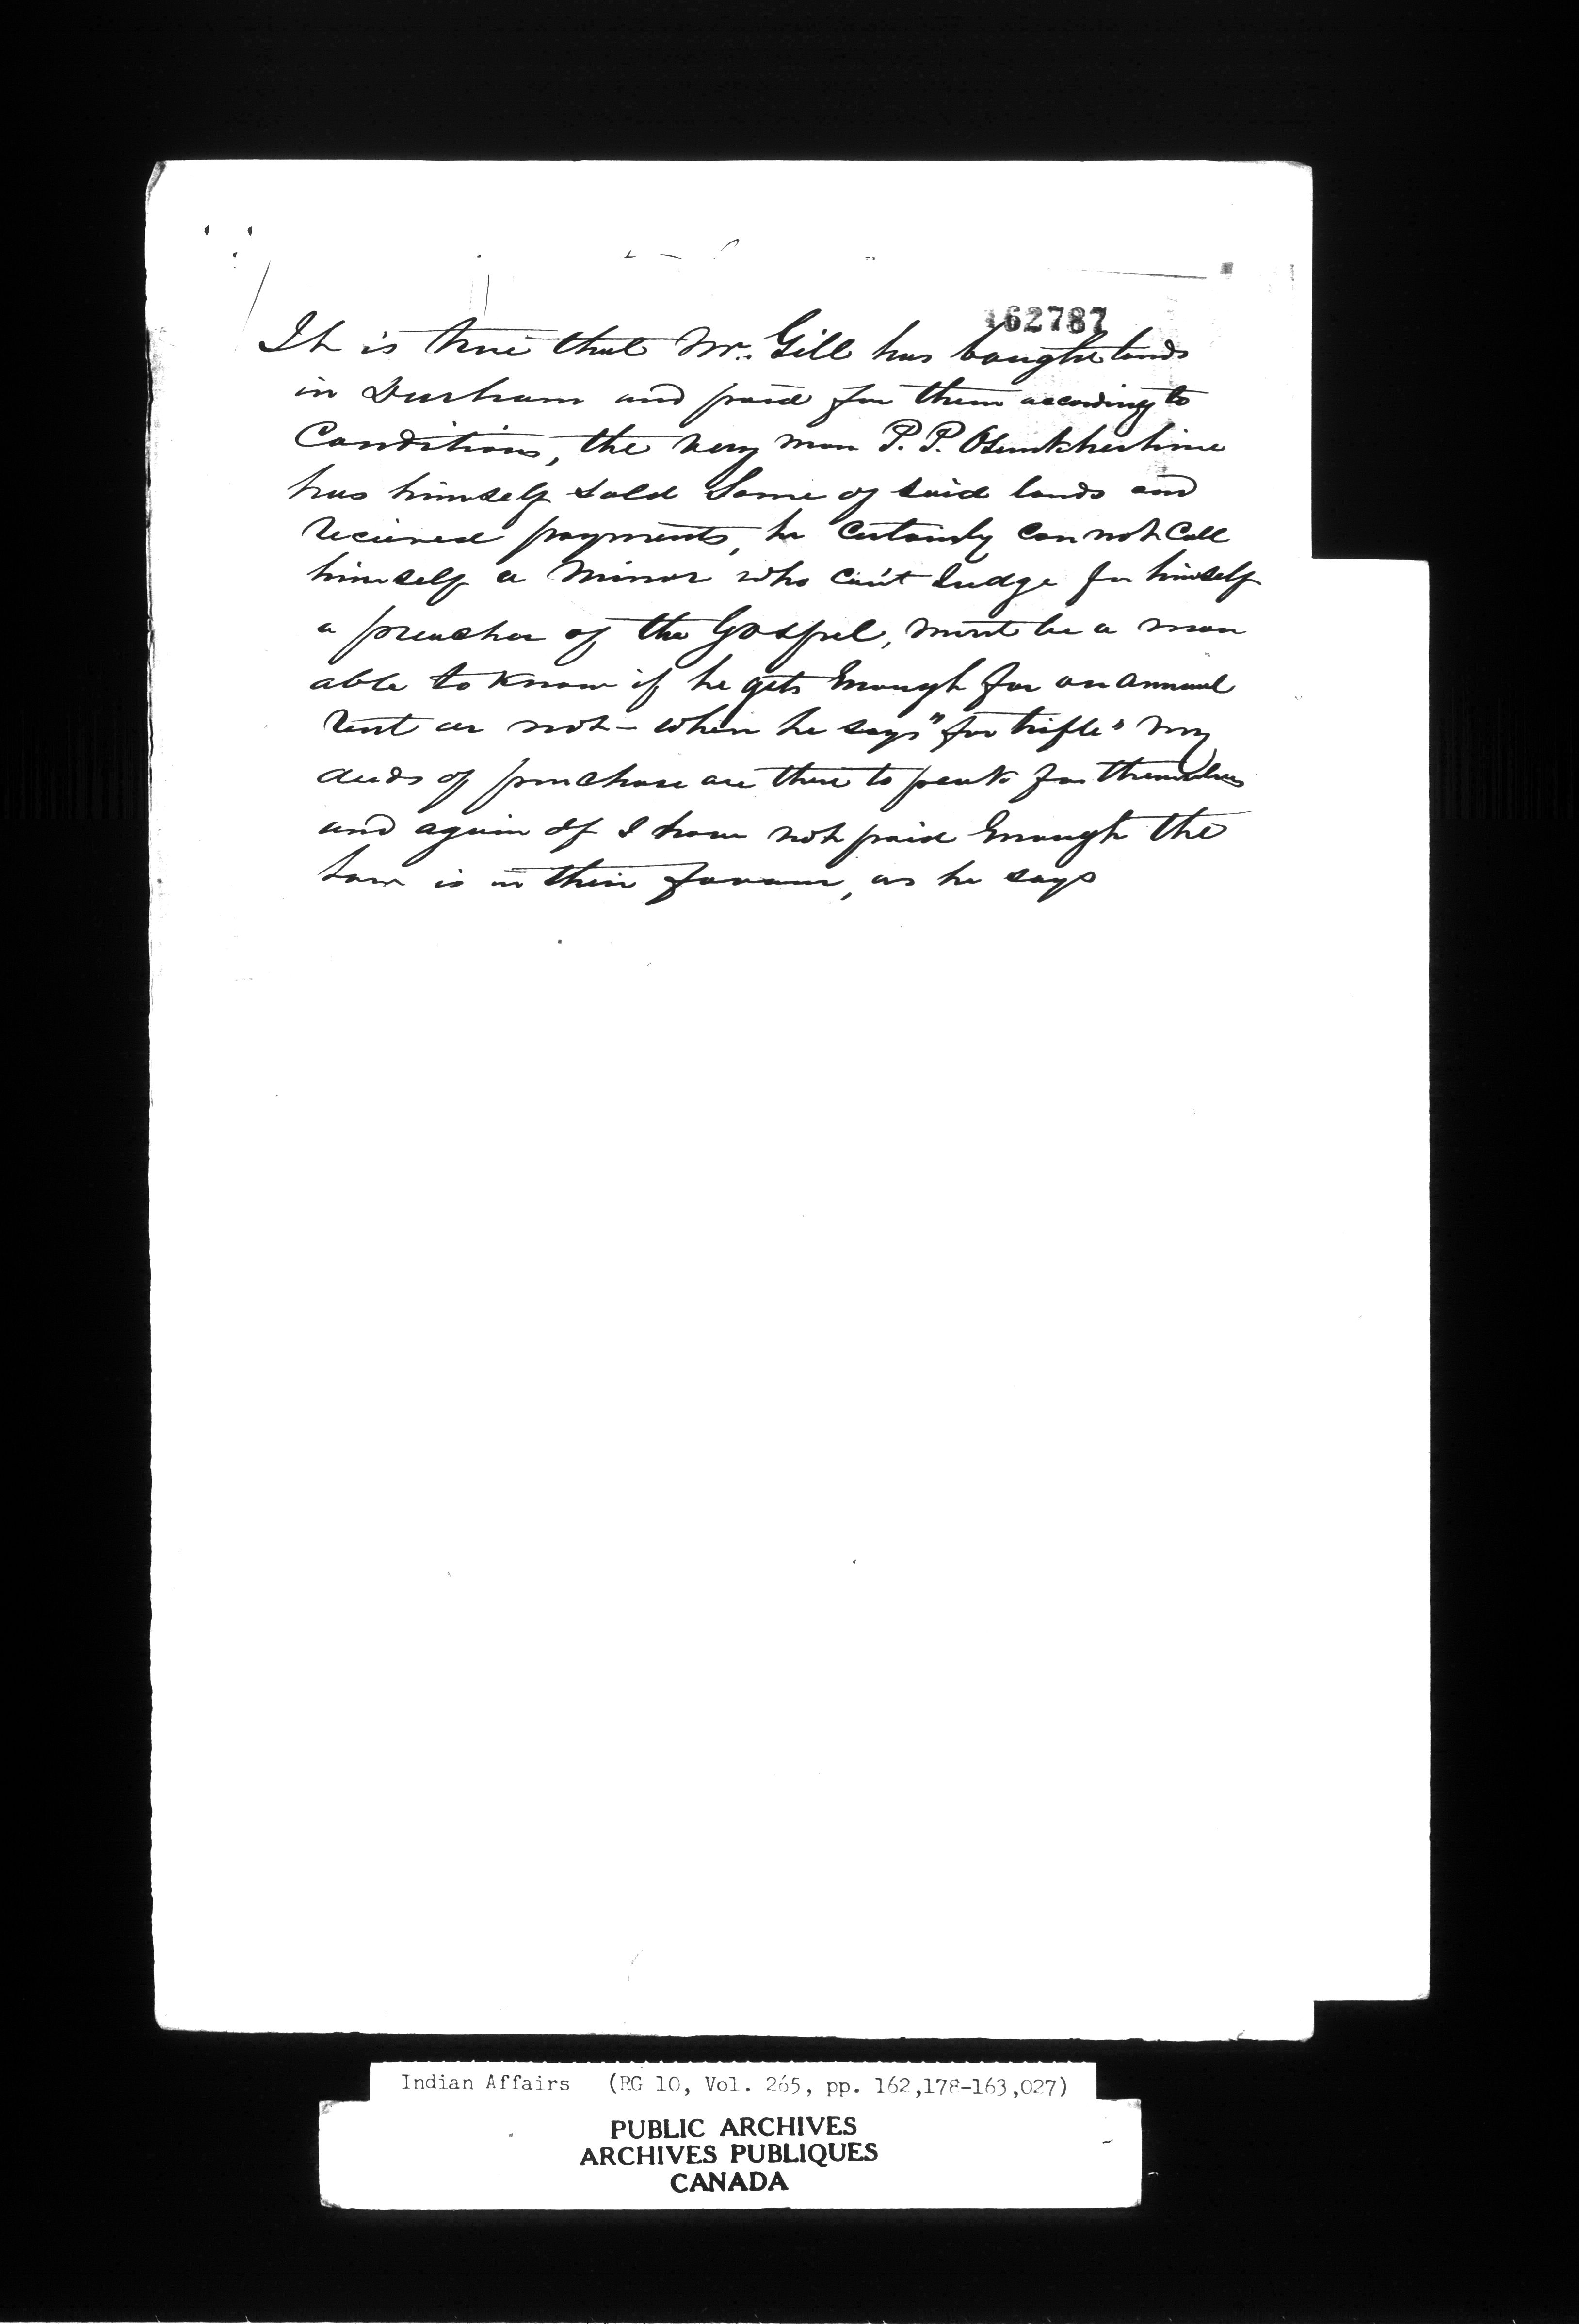 162787
It is true that Mr. Gill has bought lands
in Durham and paid for them according to
Conditions, the very man P. P. Osunkherhine
has himself sold Some of said lands and
recieved payments, he certainly can not Call
himself a Minor who can't Judge for himself
a preacher of the Gospel, must be a man
able to know if he gets Enough for an annual
rent or not – when he says "for trifle" my
deeds of purchase are there to peak for themselves
and again If I have not paid Enough the
Law is in their favour, as he says
Indian Affairs (RG 10, Vol. 265, pp. 162,178-163,027)
PUBLIC ARCHIVES
ARCHIVES PUBLIQUES
CANADA